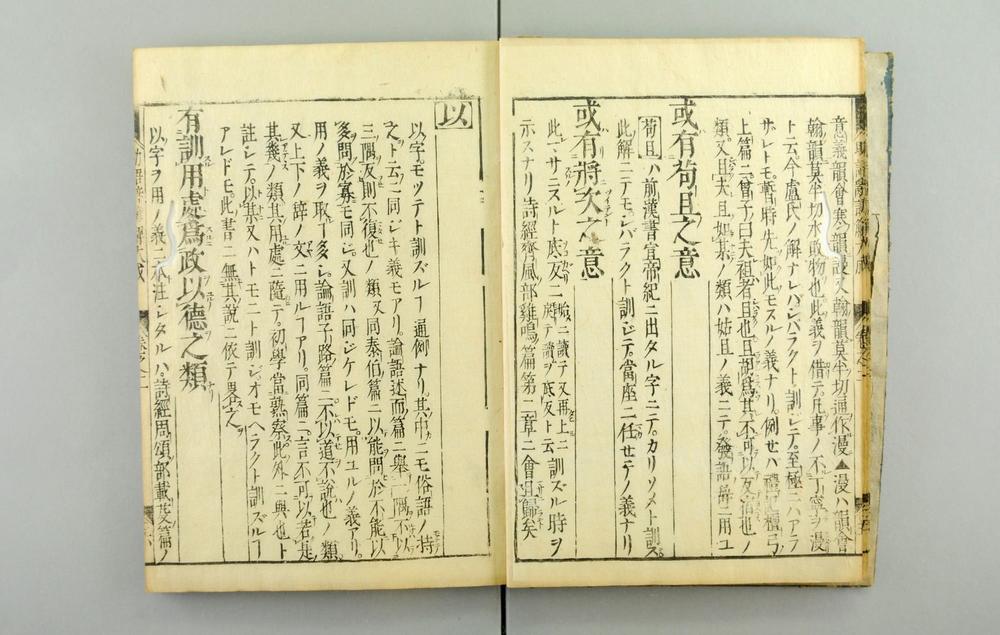 意義韻會塞韻設又翰韻莫半切通作漫▲漫ハ韻會
翰韻莫半切水敗物也此義ヲ借テ凡事ノ不丁寧ヲ漫
ト云今盧氏ノ解ナレバシバラクト訓レテ至極ニハアラ
ザレトモ暫時先如此モスルノ義ナリ例セハ禮記檀弓
上篇ニ曾子曰夫祖者且也且胡爲其不可以反宿也ノ
類又且夫且如某ノ類ハ姑且ノ義ニテ發語辞ニ用ユ
或有苟且之意
苟且ハ前漢書宣帝紀ニ出タル字ニテカリソメト訓ズ
此解ニテモシバラクト訓ジテ當座ニ任せテノ義ナリ
或有將次之意
此マサニスルト底反ノ時ニ讀テ又再上ニ訓ズル時ヲ
示スナリ詩經齊風部雞鳴篇第二章ニ會且歸矣
以
以字モツテト訓ズルヿ通例ナリ其中ニモ俗語ノ持
之ト云ニ同ジキ義モアリ論語述而篇ニ舉一隅不以
三隅反則不復也ノ類又同泰伯篇ニ以能問於不能以
多問於寡モ同ジ又訓ハ同ジケレドモ用ユルノ義アリ
用ノ義ヲ取ヿ多シ論語子路篇ニ不以道不說也ノ類
又上下ノ辞ノ文ニ用ルヿアリ同篇ニ言不可以若是
其幾ノ類其用處ニ隨テ初學當熟察此外ニ與也ト
註レテ以某又ハトモニト訓ジオモヘラクト訓ズルヿ
アレドモ此書ニ無其說ニ依テ畧之
有訓用處爲政以德之類
以字ヲ用ノ義ニ本註シタルハ詩經周頌部載芟篇ノ